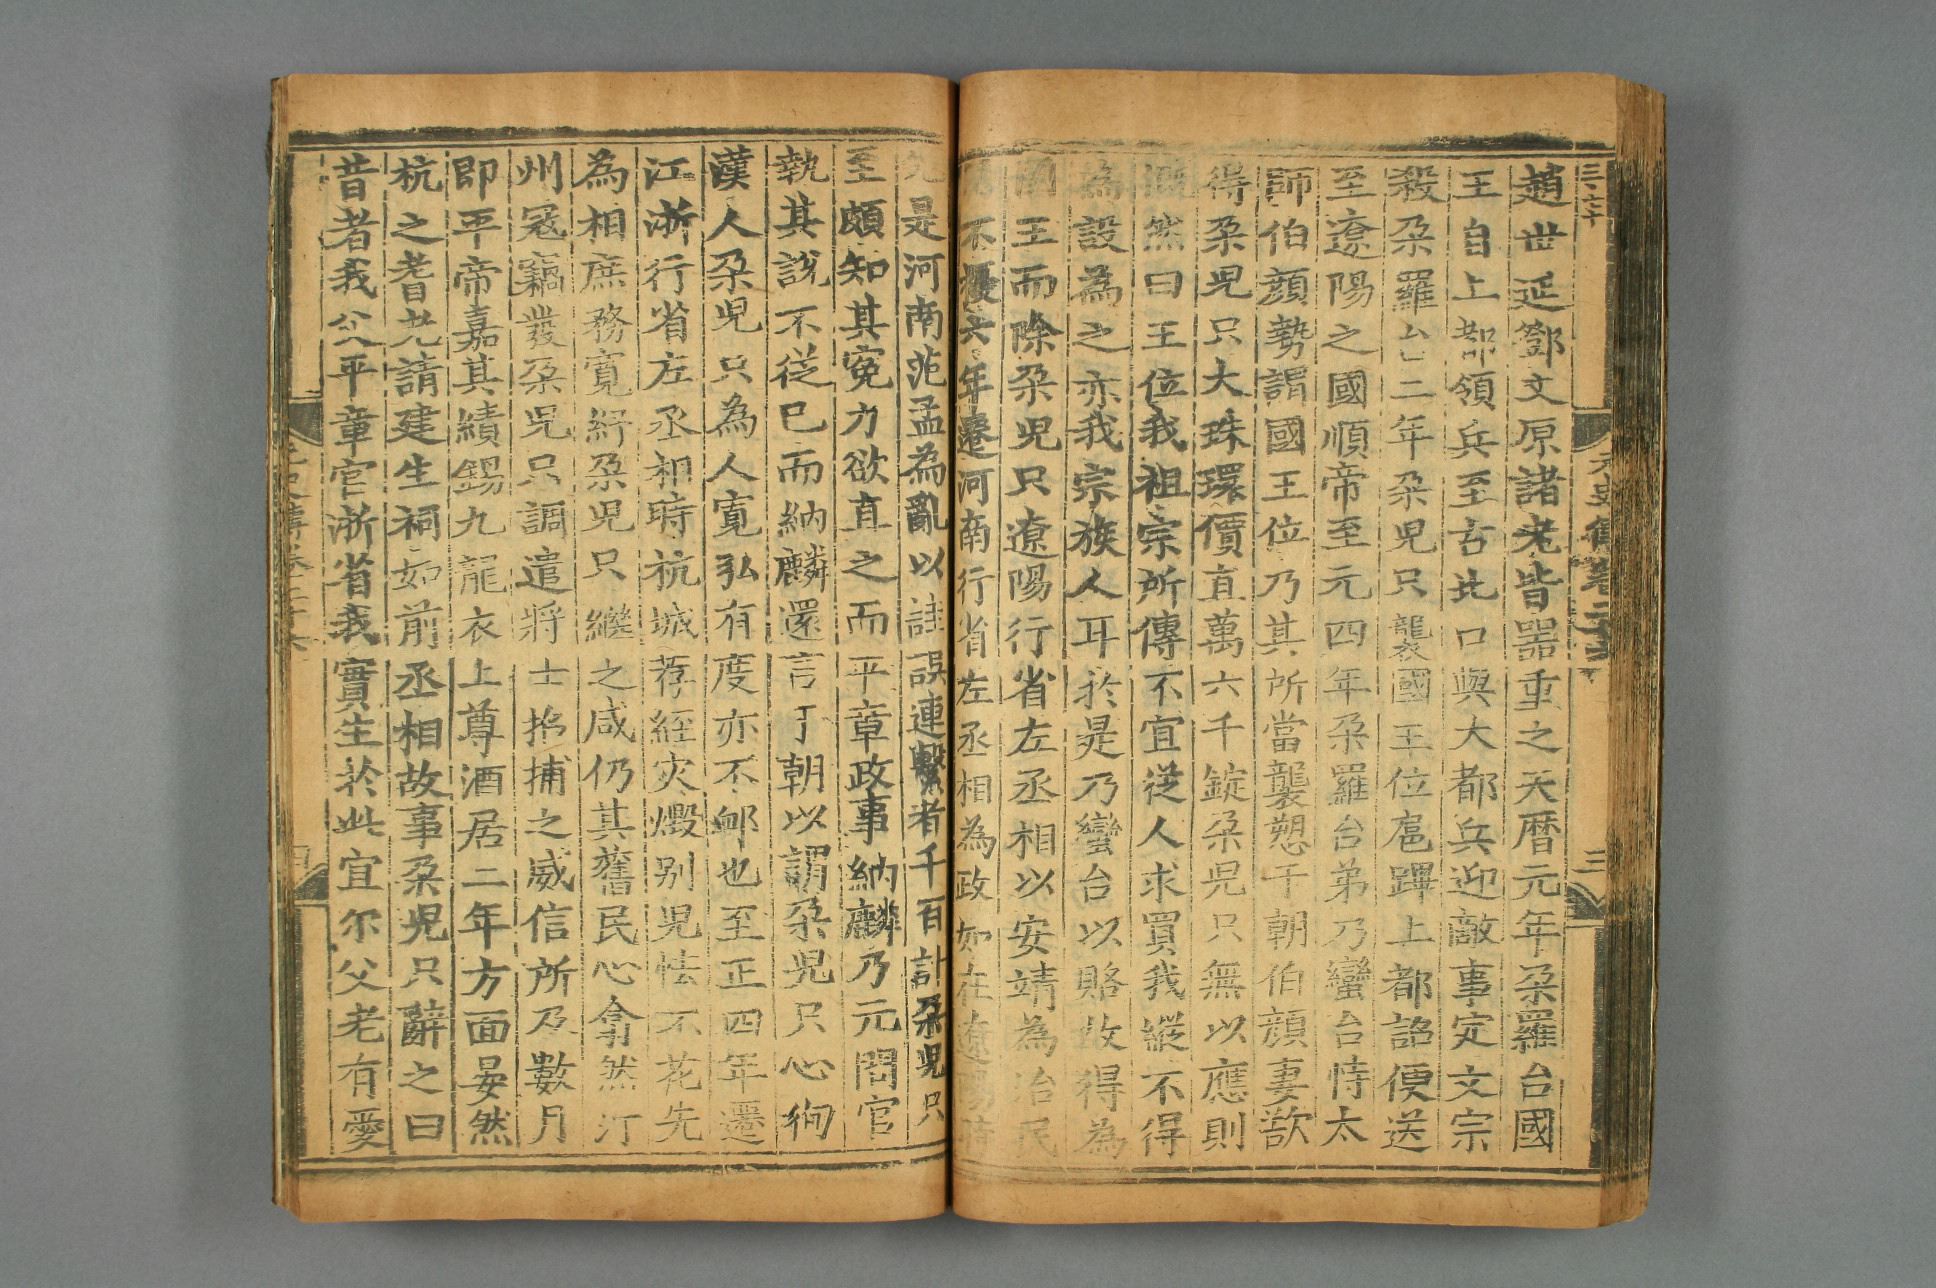 三六十
元史傳卷二十六
三
趙世延鄧文原諸老皆器重之天曆元年朶羅台國
王自上都領兵至古北口與大都兵迎敵事定文宗
殺朶羅台二年朶兒只襲國王位扈蹕上都詔便送
至遼陽之國順帝至元四年朶羅台弟乃蠻台恃太
師伯顔勢謂國王位乃其所當襲愬于朝伯顔妻欲
得朶兒只大珠環價直萬六千錠朶兒只無以應則
慨然曰王位我祖宗所傳不宜從人求買我縱不得
為設為之亦我宗族人耳於是乃蠻台以賂故得為
國王而除朶兒只遼陽行省左丞相以安靖為治民
不擾六年遷河南行省左丞相為政如在遼陽時
先是河南范孟為亂以詿誤連繫者千百計朶兒只
至頗知其寃力欲直之而平章政事納麟乃元問官
執其說不從已而納麟還言于朝以謂朶兒只心徇
漢人朶兒只為人寬弘有度亦不䘏也至正四年遷
江浙行省左丞相時杭城荐經灾燬别兒怯不花先
為相庶務寬紓朶兒只繼之咸仍其舊民心翕然汀
州冦竊發朶兒只調遣將士招捕之威信所及數月
即平帝嘉其績錫九龍衣上尊酒居二年方面晏然
杭之耆老請建生祠如前丞相故事朶兒只辭之曰
昔者我父平章官浙省我實生於此宜尔父老有愛
元史傳卷二十六
四